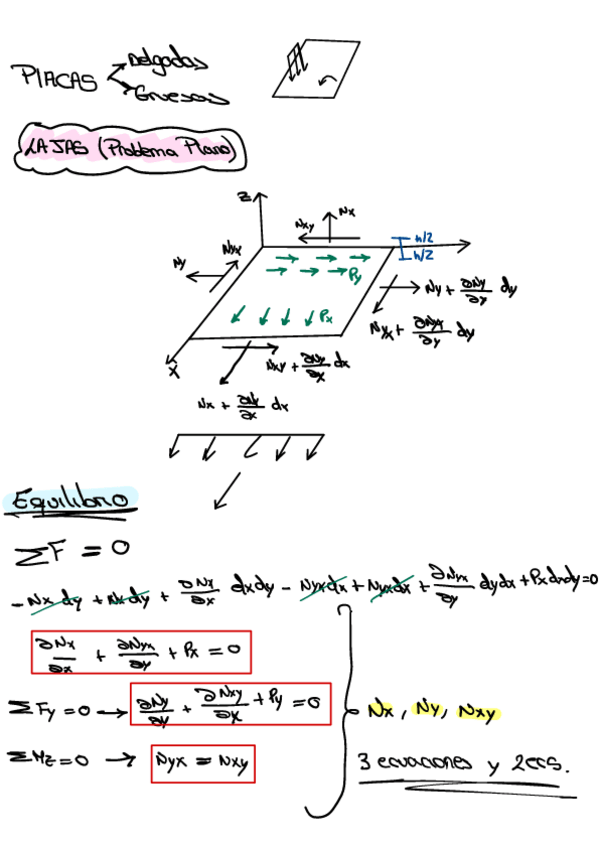 PLACAS
Delgadas
Gruesas
LAJAS (Problema Plano)
z
Nxy
Nx
h/2
h/2
Nyx
Ny
Py
Ny + ∂Ny/∂y dy
Px
Nyx + ∂Nyx/∂y dy
x
Nxy + ∂Ny/∂x dx
Nx + ∂N/∂x dx
Equilibrio
ΣF = 0
- Nx dy + Nx dy + ∂Nx/∂x dxdy - Nyx dx + Nyx dx + ∂Nyx/∂y dydx + Px dxdy = 0
∂Nx/∂x + ∂Nyx/∂y + Px = 0
ΣFy = 0 → ∂Ny/∂y + ∂Nxy/∂x + Py = 0
Nx, Ny, Nxy
ΣMz = 0 → Nyx = Nxy
3 ecuaciones y 2 ecs.